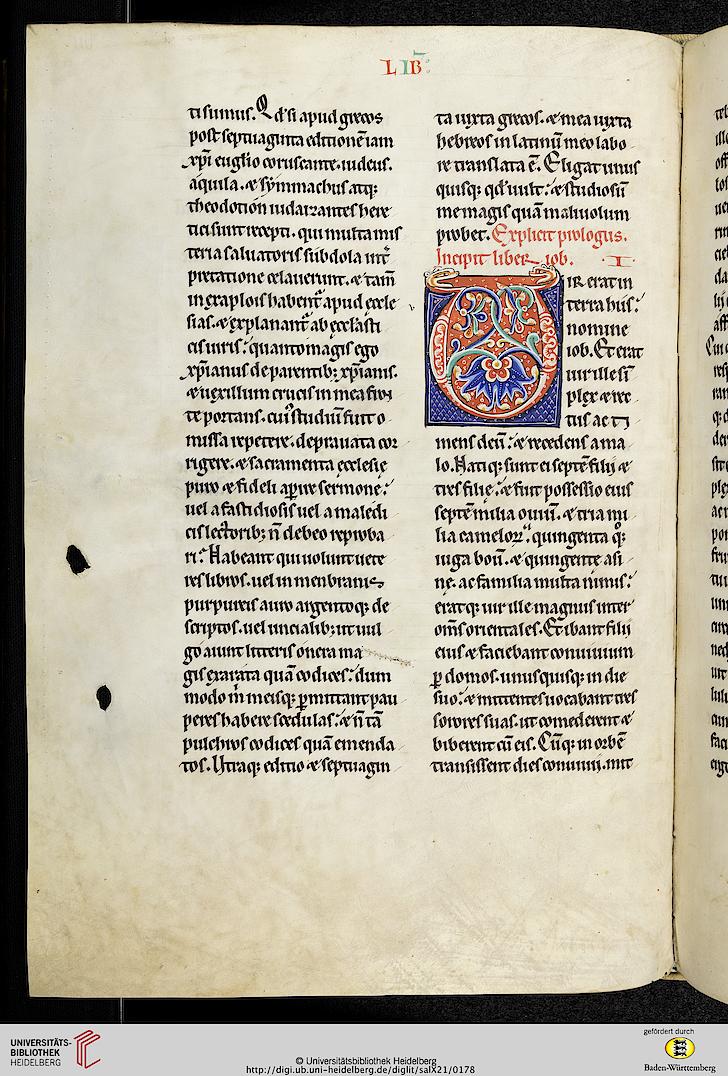 LIB
tisumus. Qd' si apud grecos
post septuaginta editionē iam
xpi euglio coruscante. iudeus.
aquila. & symmachus atq;
theodotion iudaizantes here
tici sunt recepti. qui multa mis
teria saluatoris subdola int̄
pretatione celauerunt. & tam̄
in exaplois habent̄ apud eccle
sias. & explanant̄ ab ecclasti
cis uiris. quanto magis ego
xpianus de parentib; xpianis.
& uexillum crucis in mea fron
te portans. cui studiū fuit o
missa repetere. deprauata cor
rigere. & sacramenta ecclesie
puro & fideli apire sermone.
uel a fastidiosis uel a maledi
cis lectorib; n̄ debeo reproba
ri. Habeant qui uolunt uete
res libros. uel in menbranis
purpureis auro argentoq; de
scriptos. uel uncialib; ut uul
go aiunt litteris onera ma
gis exarata quā codices. dum
modo m̄ meisq; pmittant pau
peres habere scedulas. & n̄ tā
pulchros codices quā emenda
tos. Utraq; editio & septuagin
ta iuxta grecos. & mea iuxta
hebreos in latinū meo labo
re translata ē. Eligat unus
quisq; qd' uult. & studiosū
me magis quā maliuolum
probet. Explicit prologus.
Incipit liber iob. I
UIR erat in
terra hus.
nomine
iob. Et erat
uir ille sī
plex & rec
tus ac ti
mens deū. & recedens a ma
lo. Natiq; sunt ei septē filii &
tres filie. & fuit possessio eius
septē milia ouiū. & tria mi
lia camelor. quingenta q;
iuga boū. & quingente asi
ne. ac familia multa nimis.
eratq; uir ille magnus inter
om̄s orientales. Et ibant filii
eius & faciebant conuiuium
p domos. unusquisq; in die
suo. & mittentes uocabant tres
sorores suas. ut comederent &
biberent cū eis. Cūq; in orbē
transissent dies conuiuii. mit
UNIVERSITÄTS-
BIBLIOTHEK
HEIDELBERG
© Universitätsbibliothek Heidelberg
http://digi.ub.uni-heidelberg.de/diglit/salX21/0178
gefördert durch
Baden-Württemberg